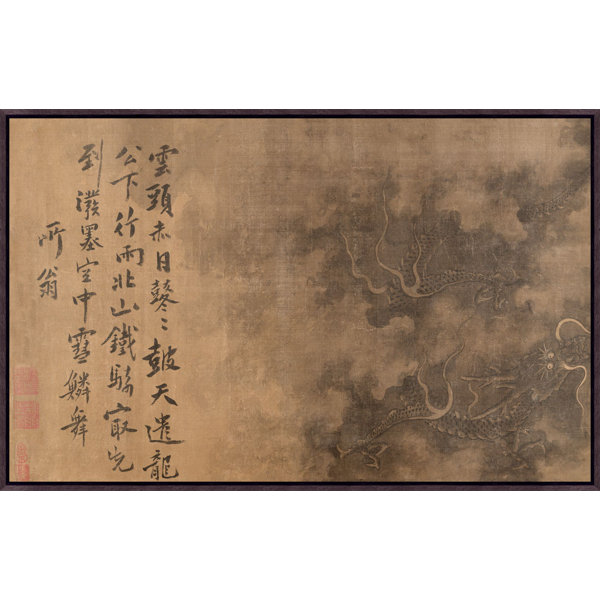 雲頭赤日鼕〻皷天遣龍
公下行雨北山鐵騎冣先
到潑墨空中雪鱗舞
所翁